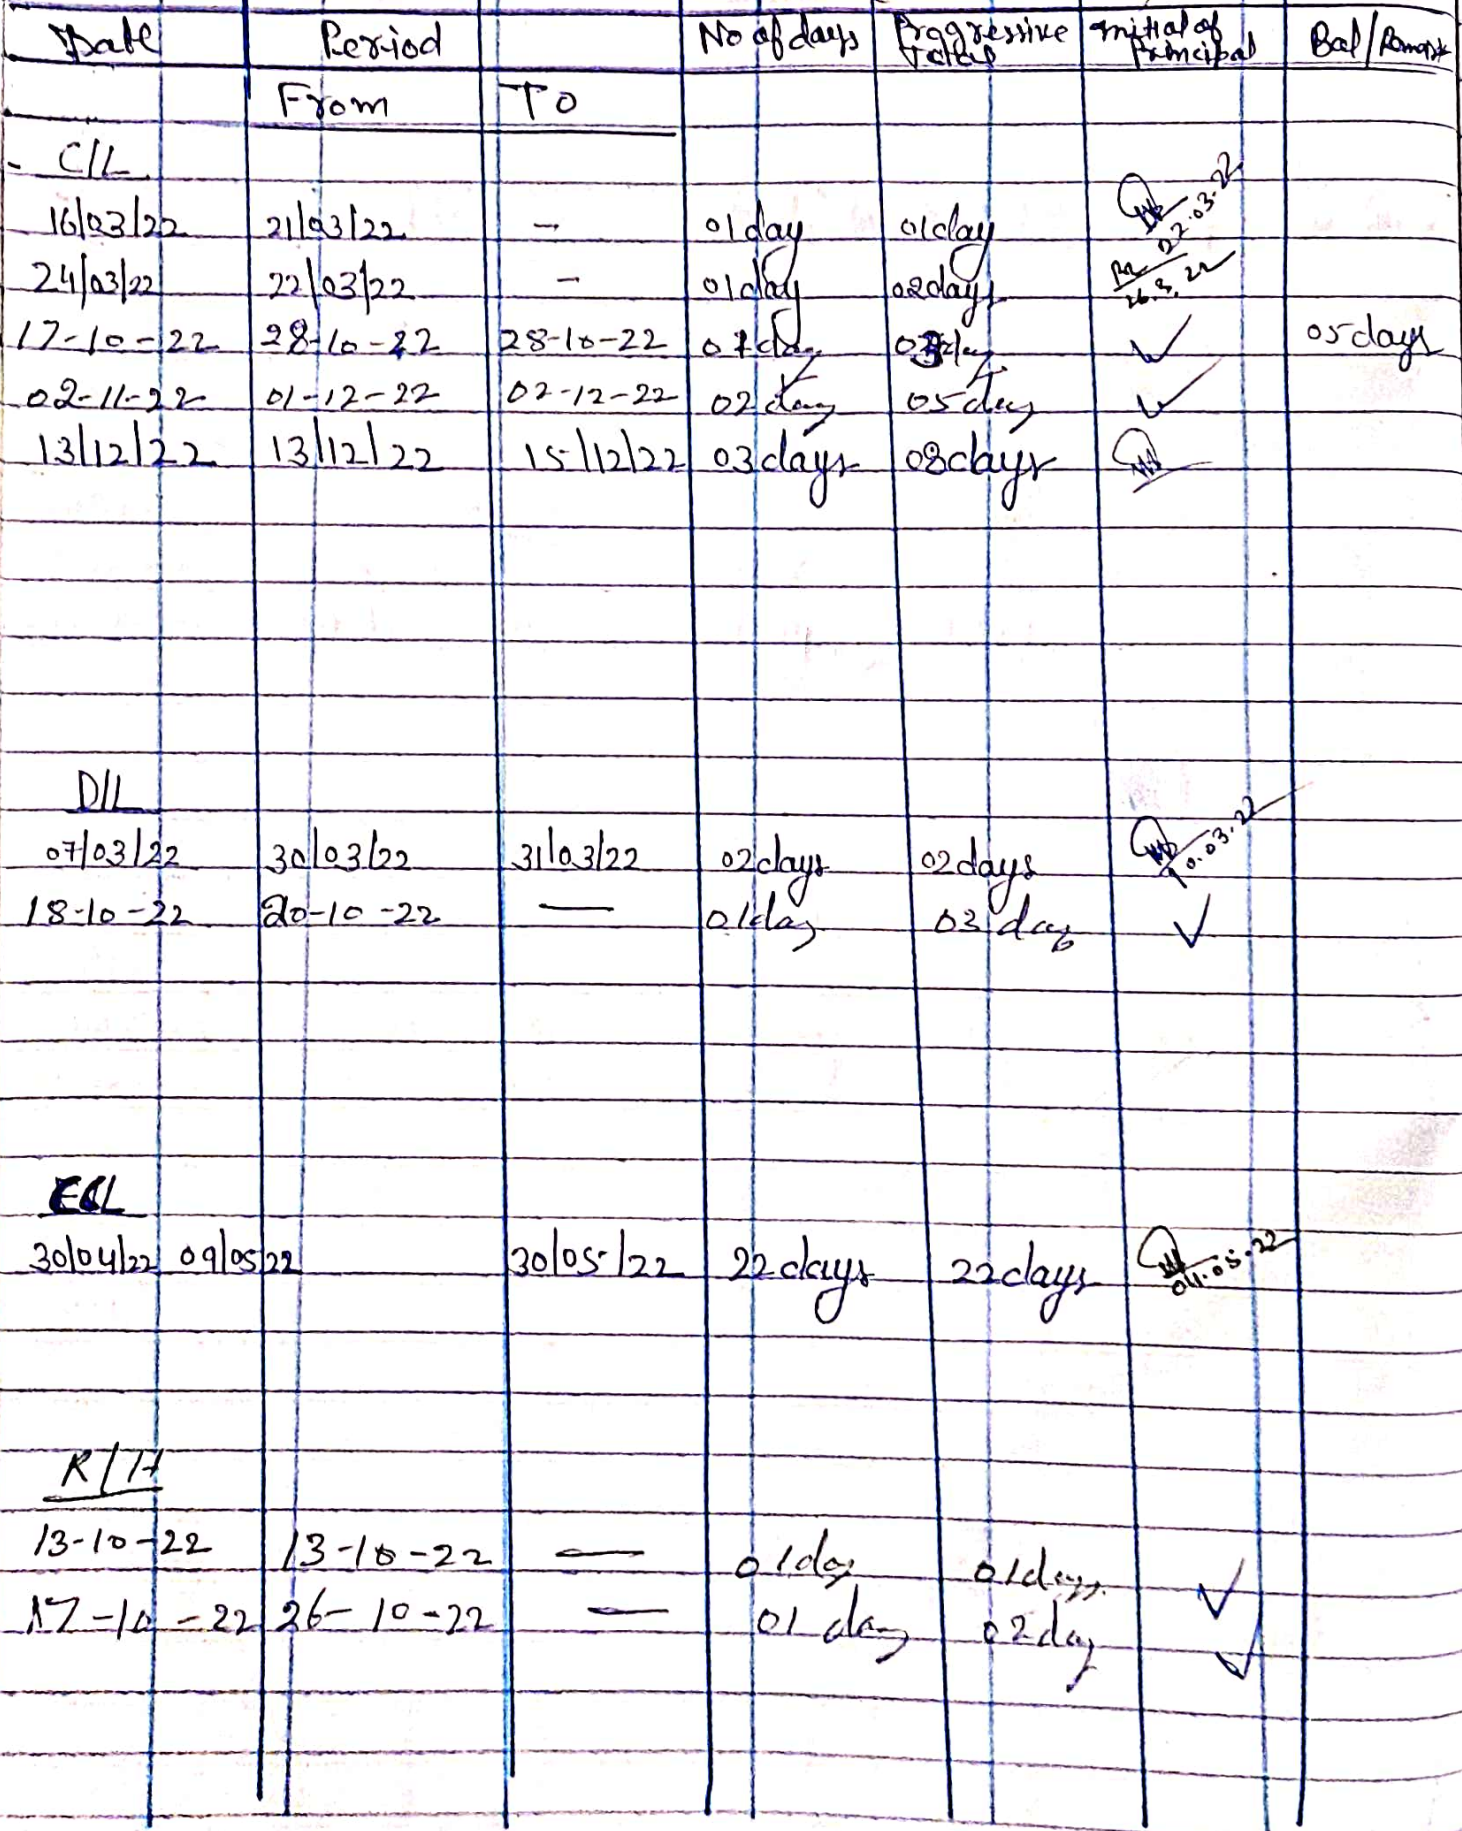 Date Period No of days Progressive Total Initial of Principal Bal/Remark
From To
C/L
16/03/22 21/03/22 - 01day 01day 22.03.22
24/03/22 22/03/22 - 01day 02days 26.3.22
17-10-22 28-10-22 28-10-22 01 day 03 day ✓ 05 days
02-11-22 01-12-22 02-12-22 02 day 05 day ✓
13/12/22 13/12/22 15/12/22 03 days 08 days
D/L
07/03/22 30/03/22 31/03/22 02days 02days .03.22
18-10-22 20-10-22 — 01day 03 day ✓
30/04/22 09/05/22 30/05/22 22 days 22 days 04.05.22
R/H
13-10-22 13-10-22 — 01day 01days ✓
17-10-22 26-10-22 — 01 day 02 day ✓